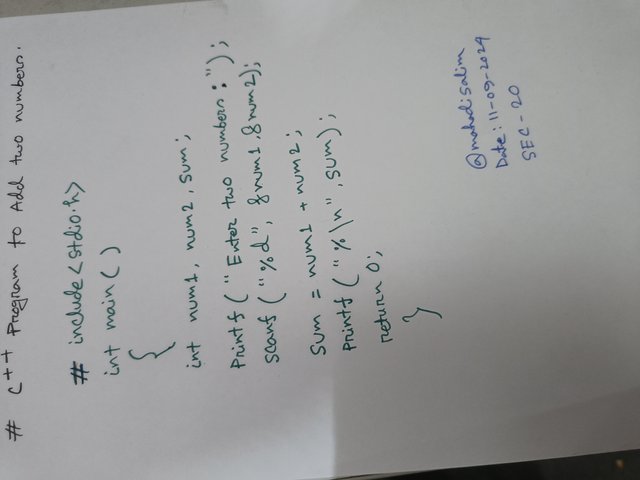 # C++ Program to Add two numbers.
# include <stdio.h>
int main ()
{
int num1, num2, sum;
Printf ("Enter two numbers:");
Scanf ("%d", &num1, &num2);
Sum = num1 + num2;
Printf ("%\n", sum);
return 0;
}
@mahadisalim
Date: 11-09-2024
SEC - 20